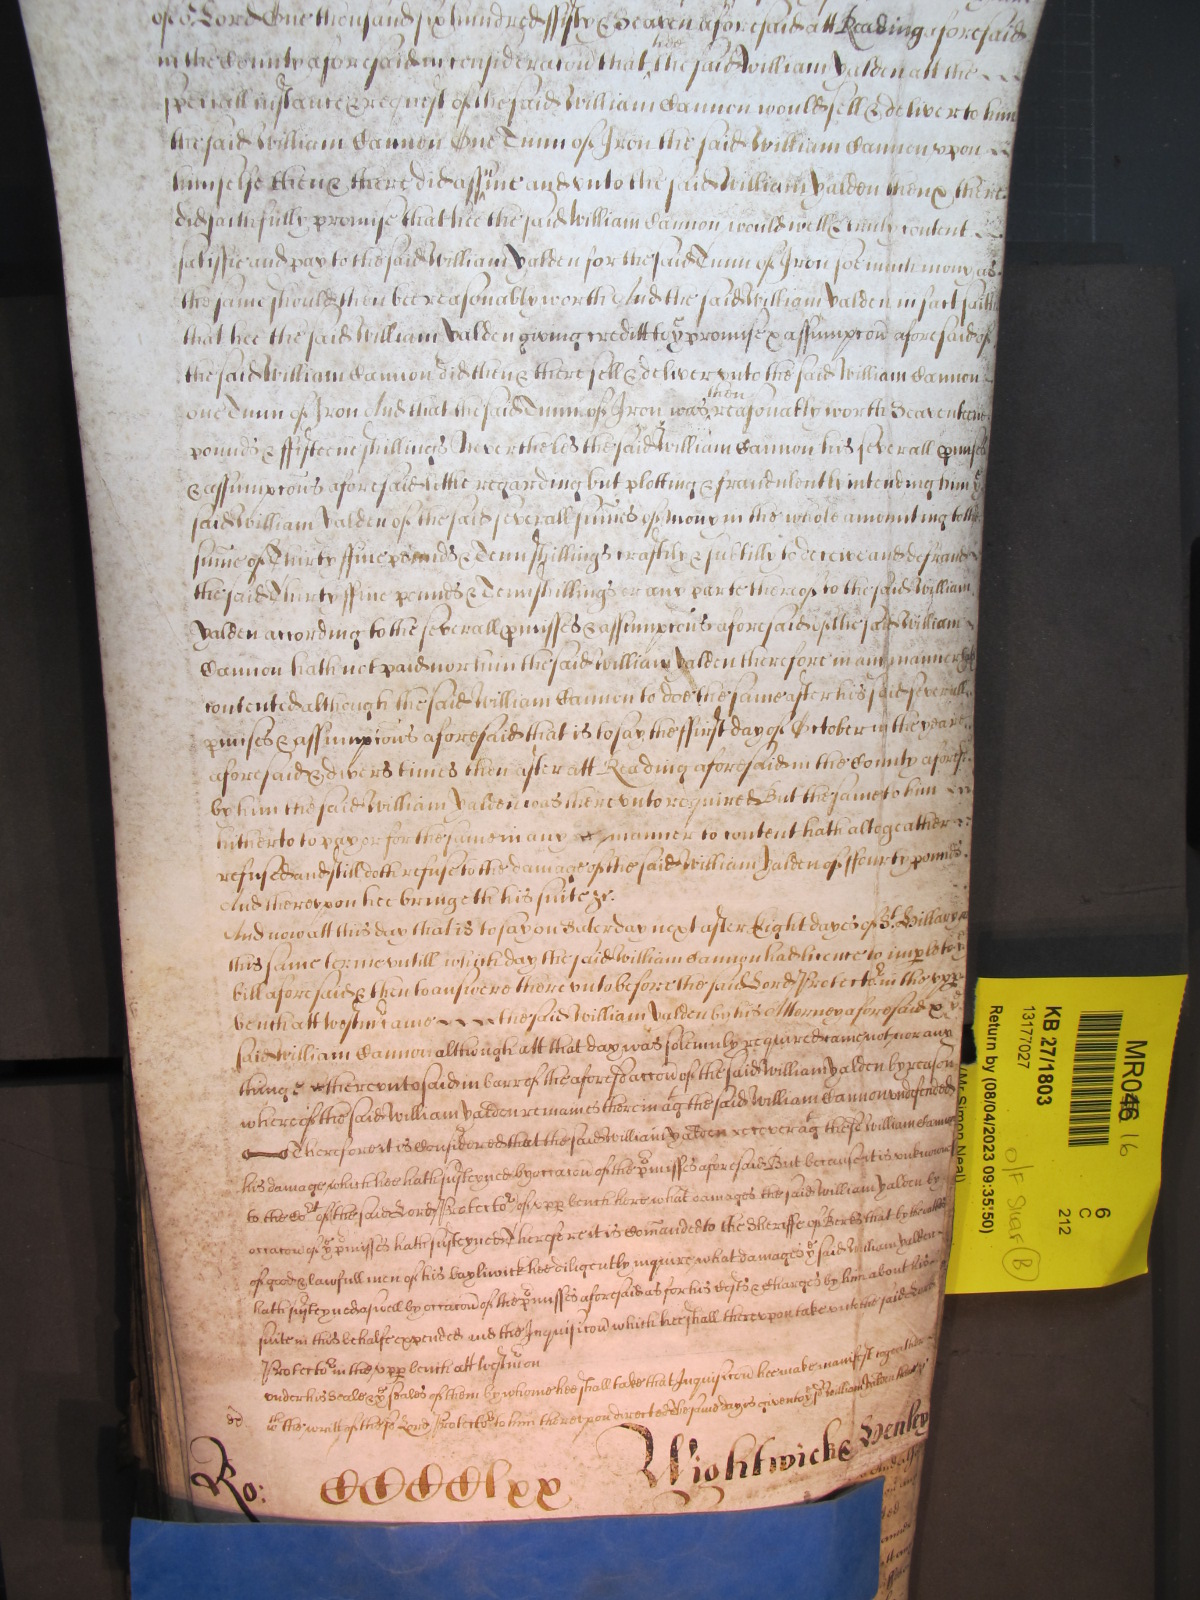 of o Lord One thousand six hundred ffifty & Seaven aforesaid att Reading aforesaid
in the County aforesaid in consideracon that hee the said William Yalden att the
speciall instance & request of the said William Cannon would sell & deliver to him
the said William Cannon One Tunn of Iron the said William Cannon upon
himselfe then & there did assume and unto the said William Yalden then & there
did faithfully promise that hee the said William Cannon would well & truly content
satisfie and pay to the said William Yalden for the said Tunn of Iron soe much mony as
the same should then bee reasonably worth And the said William Yalden in fact saith
that hee the said William Yalden giving creditt to ye promise & assumpcon aforesaid of
the said William Cannon did then & there sell & deliver unto the said William Cannon
one Tunn of Iron And that the said Tunn of Iron was then reasonably worth Seaventeene
pounds & ffifteene shillings Neverthelesse the said William Cannon his severall pmises
& assumpcons aforesaid little regarding but plotting & fraudulently intending him ye
said William Yalden of the said severall sumes of mony in the whole amounting to the
sume of Thirty ffive pounds & Tenn shillings craftily & subtilly to deceive and defraud
the said Thirty ffive pounds & Tenn shillings or any parte thereof to the said William
Yalden according to the severall pmisses & assumpcons aforesaid of the said William
Cannon hath not paid nor him the said William Yalden therefore in any manner
contented although the said William Cannon to doe the same after his said severall
pmises & assumpcons aforesaid that is to say the ffirst day of October in the yeare
aforesaid & divers times then after att Reading aforesaid in the County aforesd
by him the said William Yalden was thereunto required But the same to him
hitherto to pay or for the same in any manner to content hath altogeather
refused and still doth refuse to the damage of the said William Yalden of ffourty pounds
And thereupon hee bringeth his suite &c.
And now att this day that is to say on Saterday next after Eight dayes of St. Hillary
this same terme untill which day the said William Cannon had licence to imparle to ye
bill aforesaid & then to answere thereunto before the said Lord Protector in the upp
bench att Westmr came the said William Yalden by his Attorney aforesaid & ye
said William Cannon although att that day was solemnly required came not nor any
thinge thereunto said in barr of the aforesd accon of the said William Yalden by reason
whereof the said William Yalden remaines therein agt the said William Cannon undefended
Therefore it is Considered that the said William Yalden recover agt the sd William Cannon
his damages which hee hath susteyned by occacon of the pmisses aforesaid But because it is unknowne
to the Cort of the said Lord Protector of upp bench here what damages the said William Yalden by
occacon of ye pmisses hath susteyned Therefore it is Comanded to the Sheriffe of Berks that by the oathes
of good & lawfull men of his bayliwick hee diligently inquire what damages ye said William Yalden
hath susteyned aswell by occacon of the pmisses aforesaid as for his Costs & Charges by him about his
suite in this behalfe expended and the Inquisicon which hee shall thereupon take unto the said Lord
Protector in the upp bench att Westmon
under his Seale & ye seales of them by whome hee shall take that Inquisicon hee make manifest togeather
wth the writt of the sd Lord Protector to him thereupon directed The same day is given to ye sd William Yalden there &c
Ro: CCCClxx Wightwicke Henley
MR046 16
6
C
212
KB 27/1803
13177027
Return by (08/04/2023 09:35:50)
(Mr Simon Neal)
O/F Shelf B